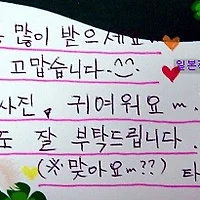 많이 받으세요
꼬맙습니다.^^
일본
사진, 귀여워요m.
도 잘 부탁드립니다.
(※맞아요m??) 타